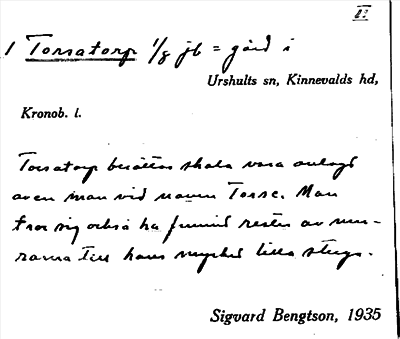 III
1 Torsatorp 1/8 jb = gård i
Urshults sn, Kinnevalds hd,
Kronob. l.
Torsatorp berättas skola vara anlagt
av en man vid namn Torse. Man
tror sig också ha funnit rester av mu-
rarna till hans mycket lilla stuga.
Sigvard Bengtson, 1935